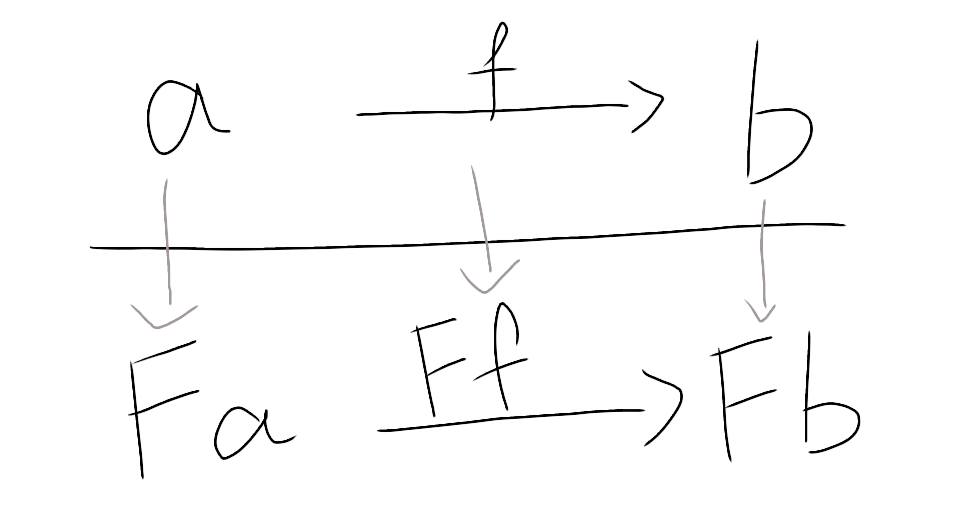 a f b
Fa Ff Fb